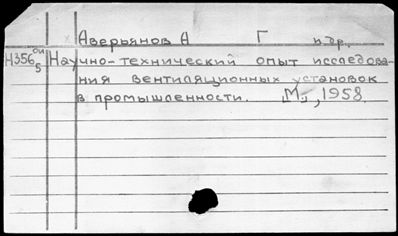 Аверьянов А Г и др.
Н356 Научно-технический опыт исследова-
ния вентиляционных установок
в промышленности. М., 1958.